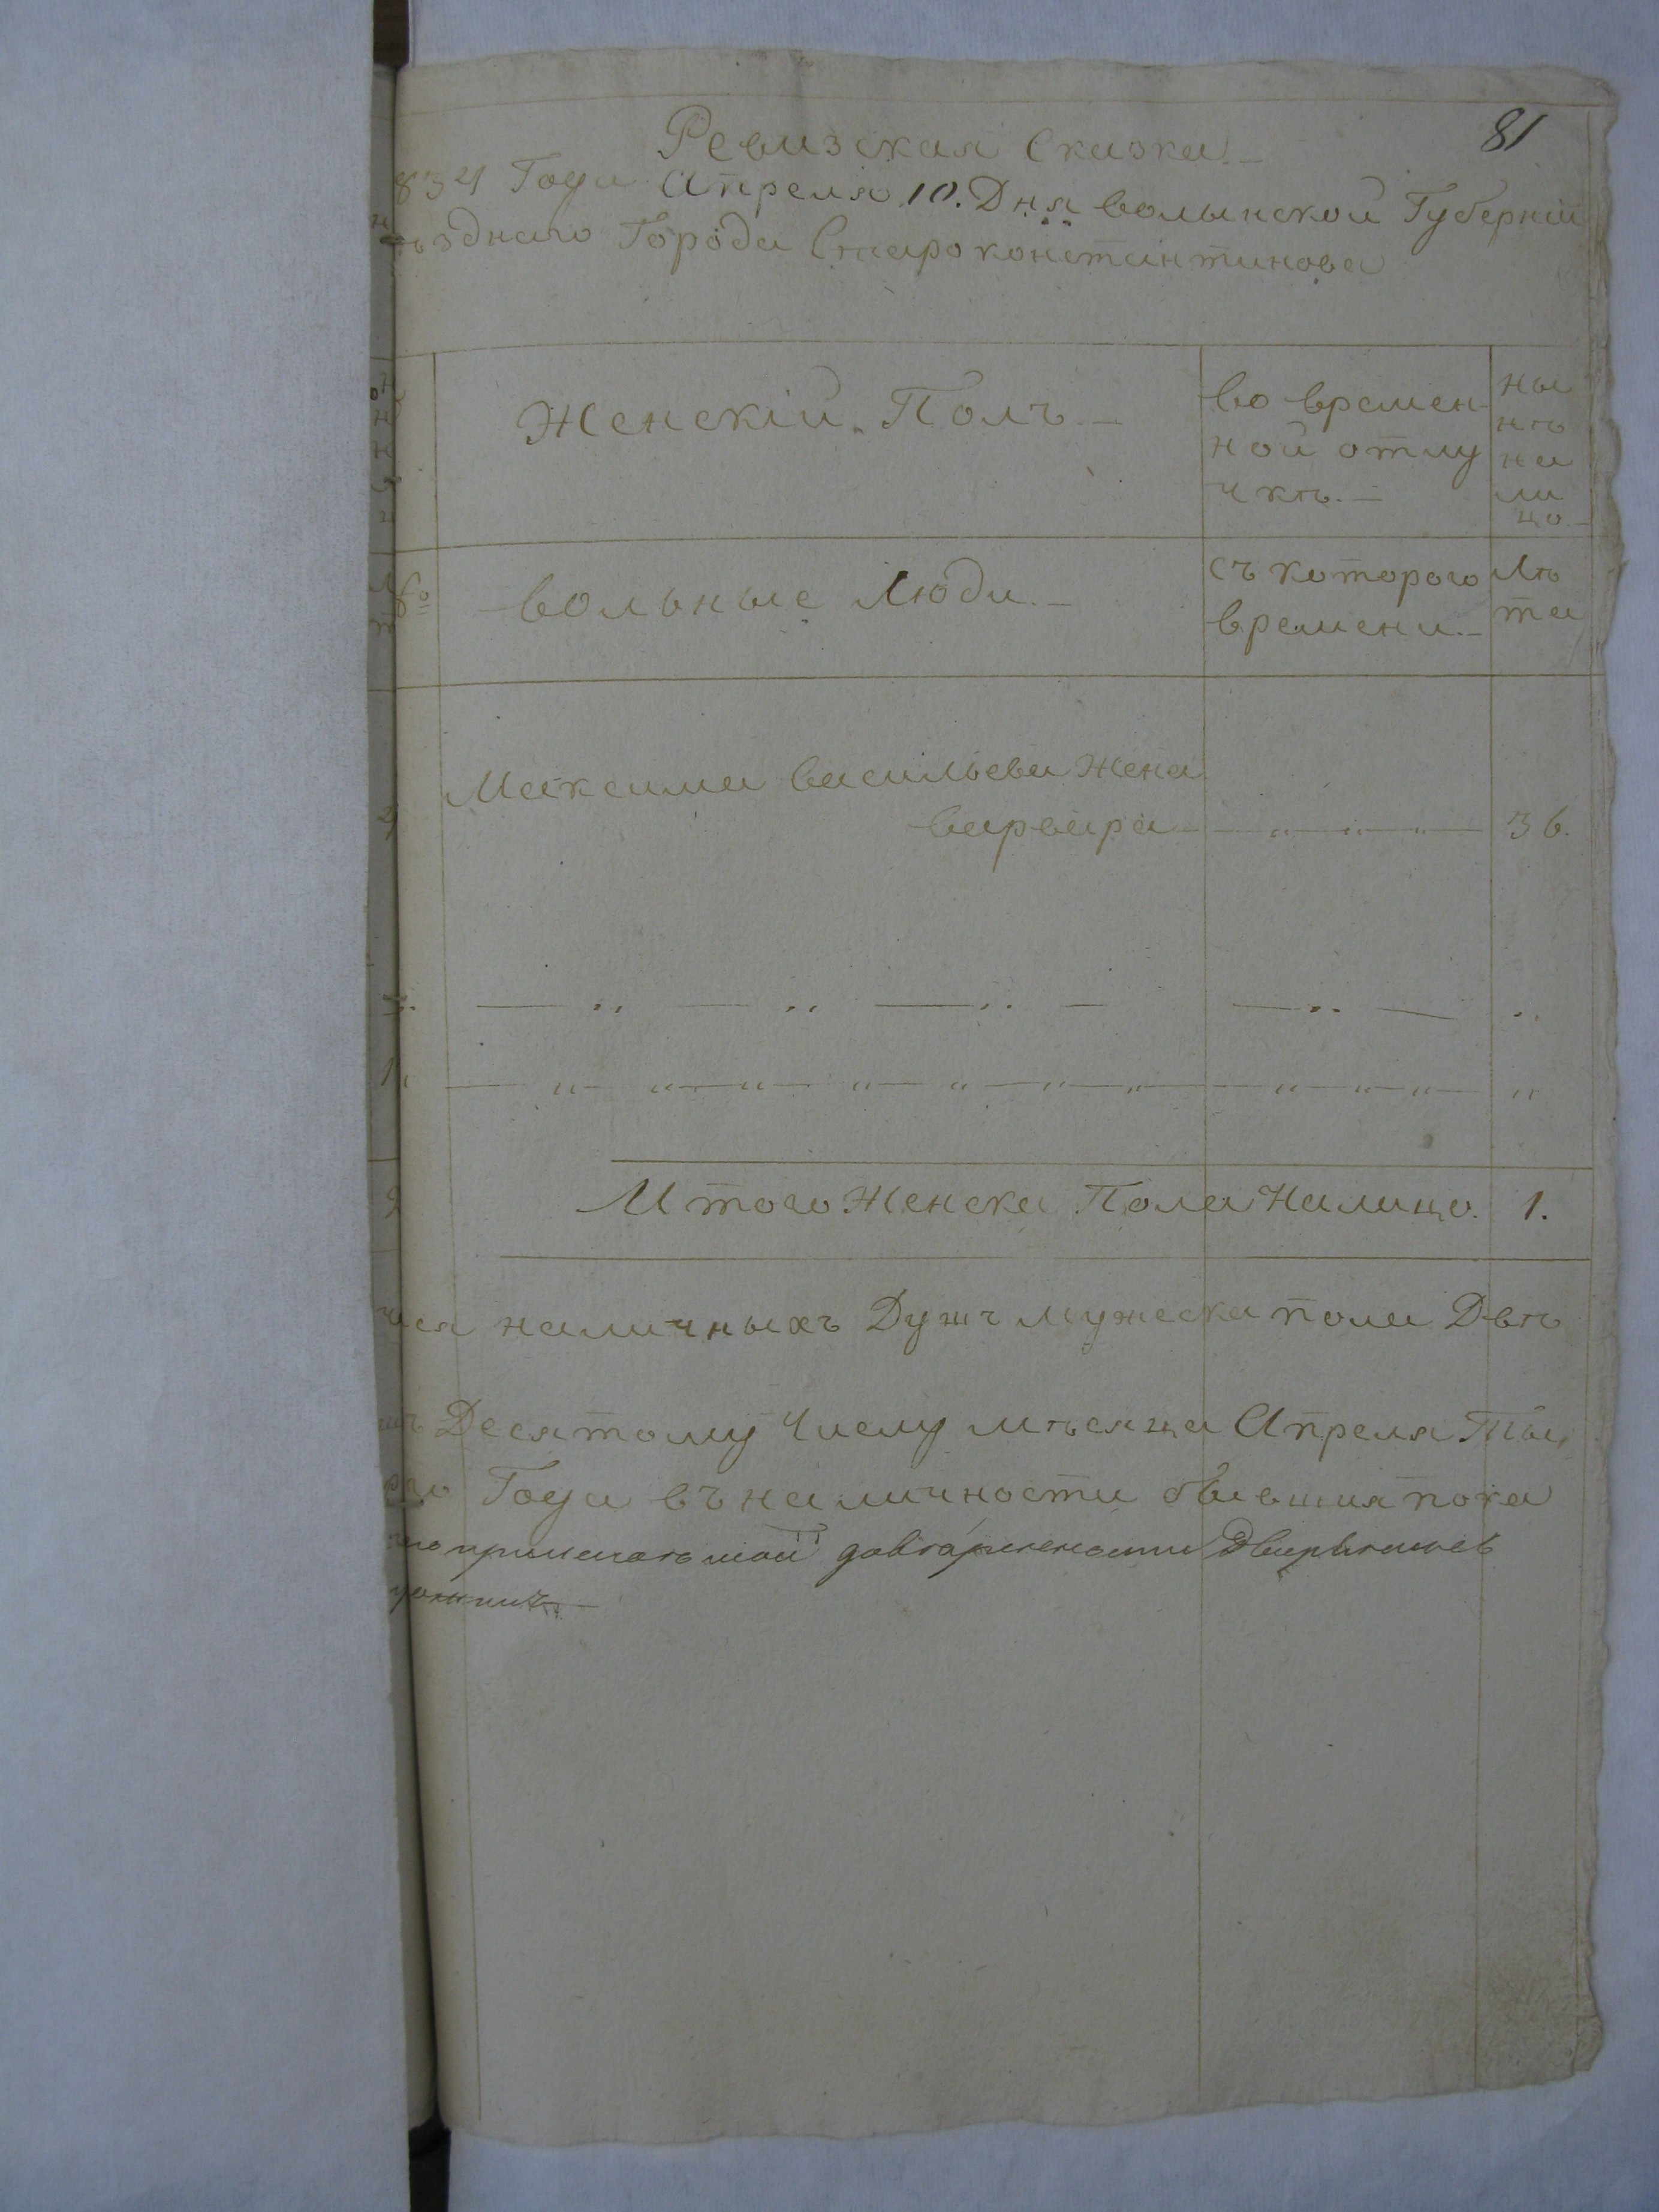 81
Ревизская Сказка.—
834 Года Апреля 10. Дня волынской Губерніи
ѣзднаго Города Староконстантинова
Женскій Полъ.—
во времен-
ной отлу
чкѣ.—
ны
нѣ
на
ли
цо.—
вольные Люди.—
съ которого
времени.—
Лѣ
та
Максима васильева жена
варвара — „ — „ — „ — 36.
— „ — „ — „ — — „ — „
— „ — „ — „ — „ — „ — „ — „ — „ — „ — „ — „
Итого Женска Пола Налицо. 1.
наличныхъ Душъ мужеска пола Двѣ
Десятому Числу мѣсяца Апреля
Года въ наличности